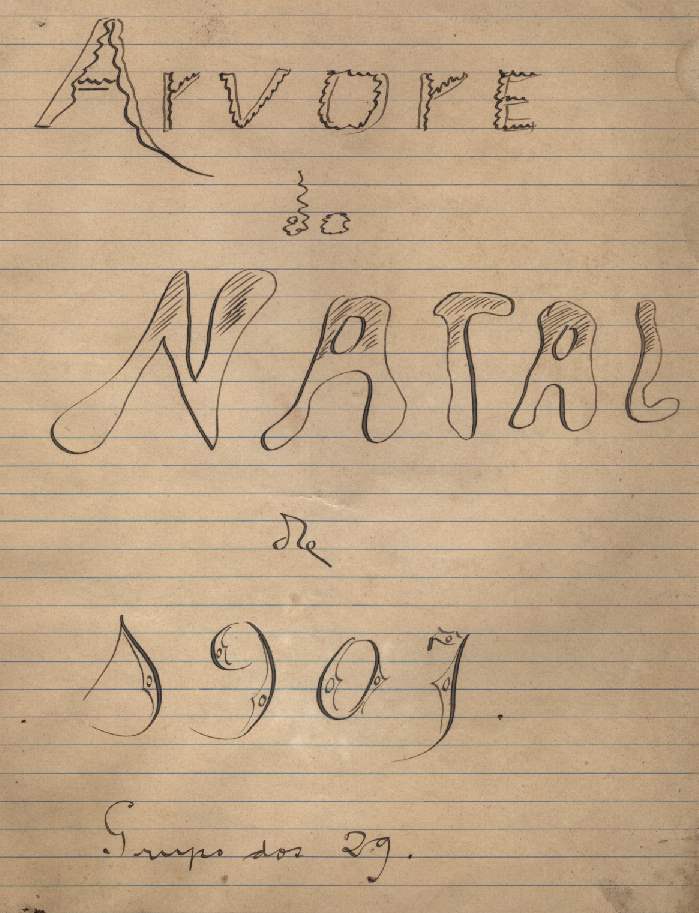 Arvore
do
NATAL
de
1907.
Grupo dos 29.